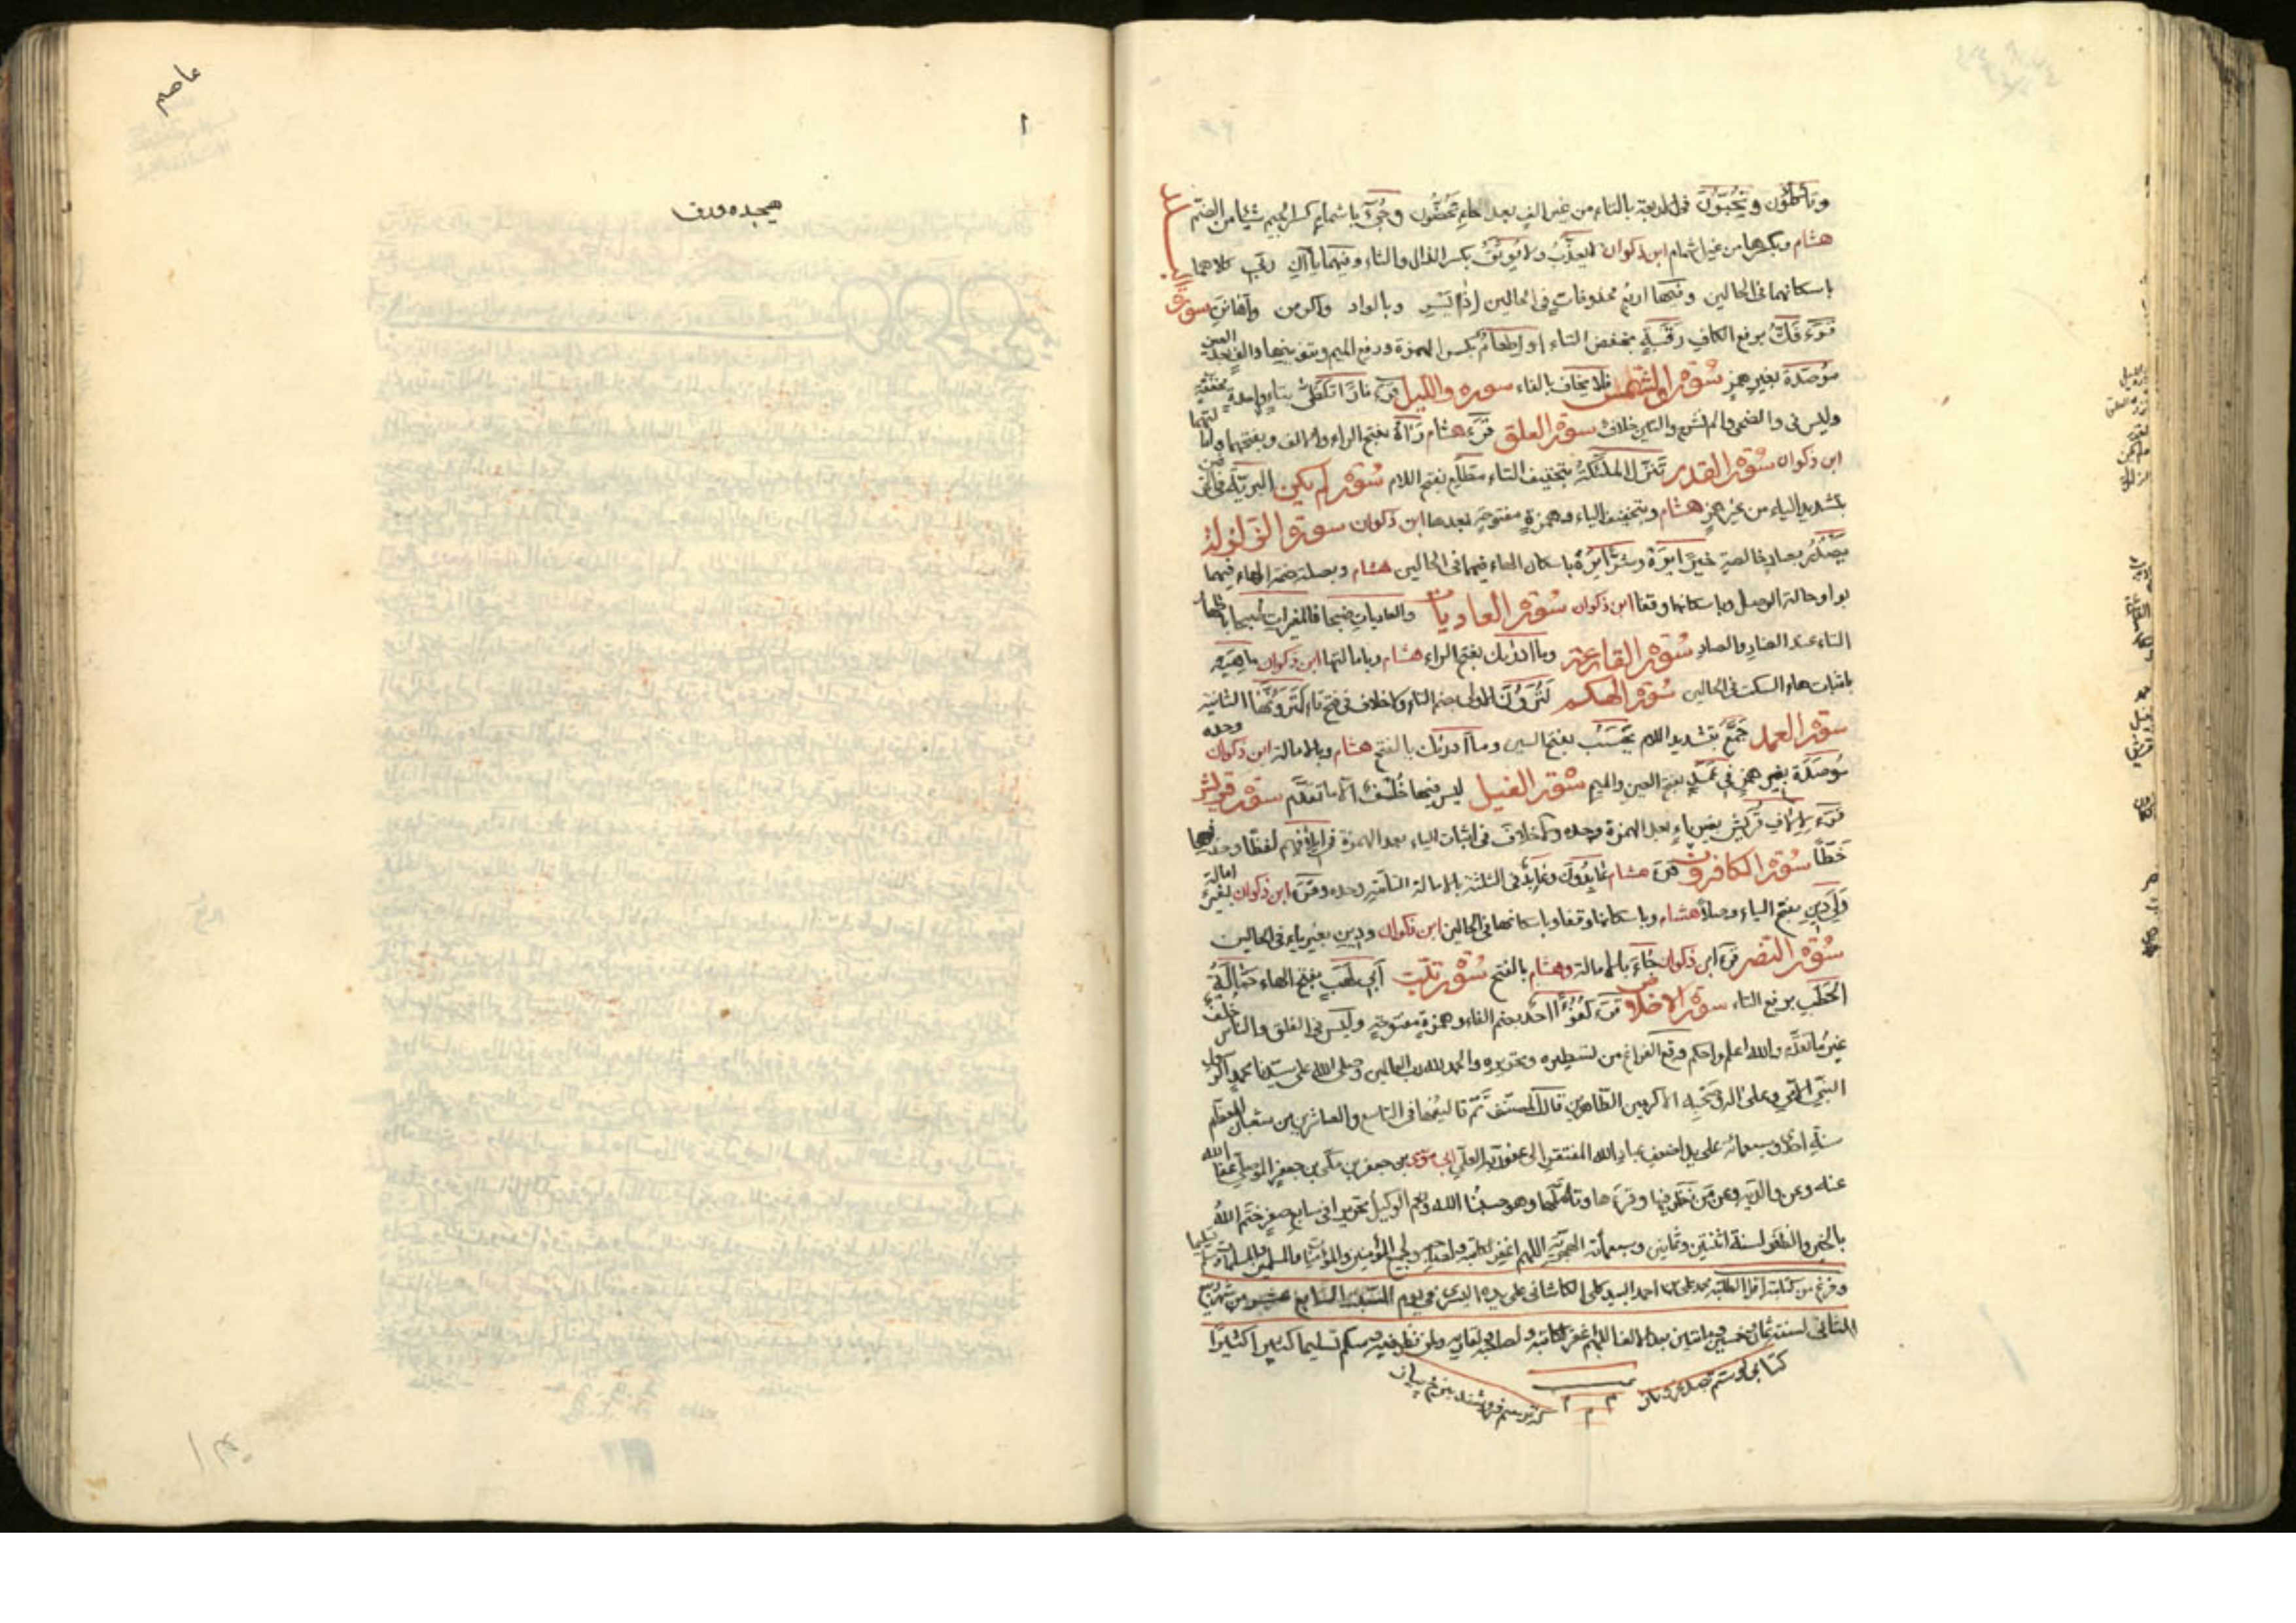 وتأكلون وتحبون في الاربعة بالتاء من غير الف بعد حاء تحضون وجيء باشمام كسر الجيم شيئا من الضم
هشام وبكسرها من غير اشمام ابن ذكوان لا يعذب ولا يوثق بكسر الذال والثاء وفيها ياآن ربي كلاهما
باسكانهما في الحالين وفيها اربع محذوفات في الحالين اذا يسر وبالواد واكرمن واهانن سورة البلد
قرء فك برفع الكاف رقبة بخفض التاء او اطعام بكسر الهمزة ورفع الميم وتنوينها والف بعد العين
موصدة بغير همز سورة والشمس فلا يخاف بالفاء سورة والليل قرء نارا تلظى بتاء واحدة مخففة
وليس في والضحى والم نشرح والتين خلاف سورة العلق قرء هشام رآه بفتح الراء والالف وبفتحها وامالتها
ابن ذكوان سورة القدر تنزل الملئكة بتخفيف التاء مطلع بفتح اللام سورة لم يكن البرية
بتشديد الياء من غير همز هشام وبتخفيف الياء وهمزة مفتوحة بعدها ابن ذكوان سورة الزلزلة
يصدر بصاد خالصة خيرا يره وشرا يره باسكان الهاء فيهما في الحالين هشام وبصلة ضمة الهاء فيهما
بواو حالة الوصل وباسكانها وقفا ابن ذكوان سورة العاديات والعاديات ضبحا فالمغيرات صبحا باظهار
التاء عند الضاد والصاد سورة القارعة وما ادريك بفتح الراء هشام وبامالتها ابن ذكوان ماهيه
باثبات هاء السكت في الحالين سورة الهكم لترون الاولى بضم التاء ولا خلاف في فتح تاء لترونها الثانية
سورة العمد جمع بتشديد الميم يحسب بفتح السين وما ادريك بالفتح هشام وبالامالة ابن ذكوان وحده
موصدة بغير همز في عمد بفتح العين والميم سورة الفيل ليس فيها خلف الا ما تقدم سورة قريش
قرء لالاف قريش بغير ياء بعد الهمزة وحده ولا خلاف في اثبات الياء بعد الهمزة في ايلافهم لفظا وحذفها
خطا سورة الكافرون قرء هشام عابدون وعابد في الثلثة بالامالة وحده وقرء ابن ذكوان بغير امالة
ولي دين بفتح الياء وصلا هشام وباسكانها وقفا وباسكانها في الحالين ابن ذكوان ودين بغير ياء في الحالين
سورة النصر قرء ابن ذكوان جاء بالامالة وهشام بالفتح سورة تبت ابي لهب بفتح الهاء حمالة
الحطب برفع التاء سورة الاخلاص قرء كفؤا احد بضم الفاء وهمزة مفتوحة وليس في الفلق والناس خلف
غير ما تقدم والله اعلم واحكم وقع الفراغ من تسطيره وتحريره والحمد لله رب العالمين وصلى الله على سيدنا محمد
النبي الامي وعلى اله وصحبه الاكرمين الطاهرين قال المصنف تم تاليفها في التاسع والعاشر من شعبان المعظم
سنة احدى وسبعمائة على يد اضعف عباد الله المفتقر الى عفو ربه العلي ابي موسى بن جعفر بن مكي بن جعفر الموصلي عفا الله
عنه وعن والديه وعن من نظر فيها وقرءها وتاملها وهو حسبنا الله ونعم الوكيل تحريرا في سابع صفر ختم الله
بالخير والظفر لسنة اثنتين وثمانين وسبعمأئة الهجرية اللهم اغفر لكاتبه ولجميع المؤمنين والمؤمنات والمسلمين والمسلمات
وفرغ من كتابته اقل الطلبة محمد علي بن احمد السيد علي الكاشاني على يده اليسرى في يوم السبت السابع عشر من شهر ربيع
الثاني لسنة ثمان وخمسين ومائتين بعد الالف اللهم اغفر لكاتبه ولصاحبه ولقاريه ولمن نظر فيه وسلم تسليما كثيرا كثيرا
عاصم
۱
هیجده ورق